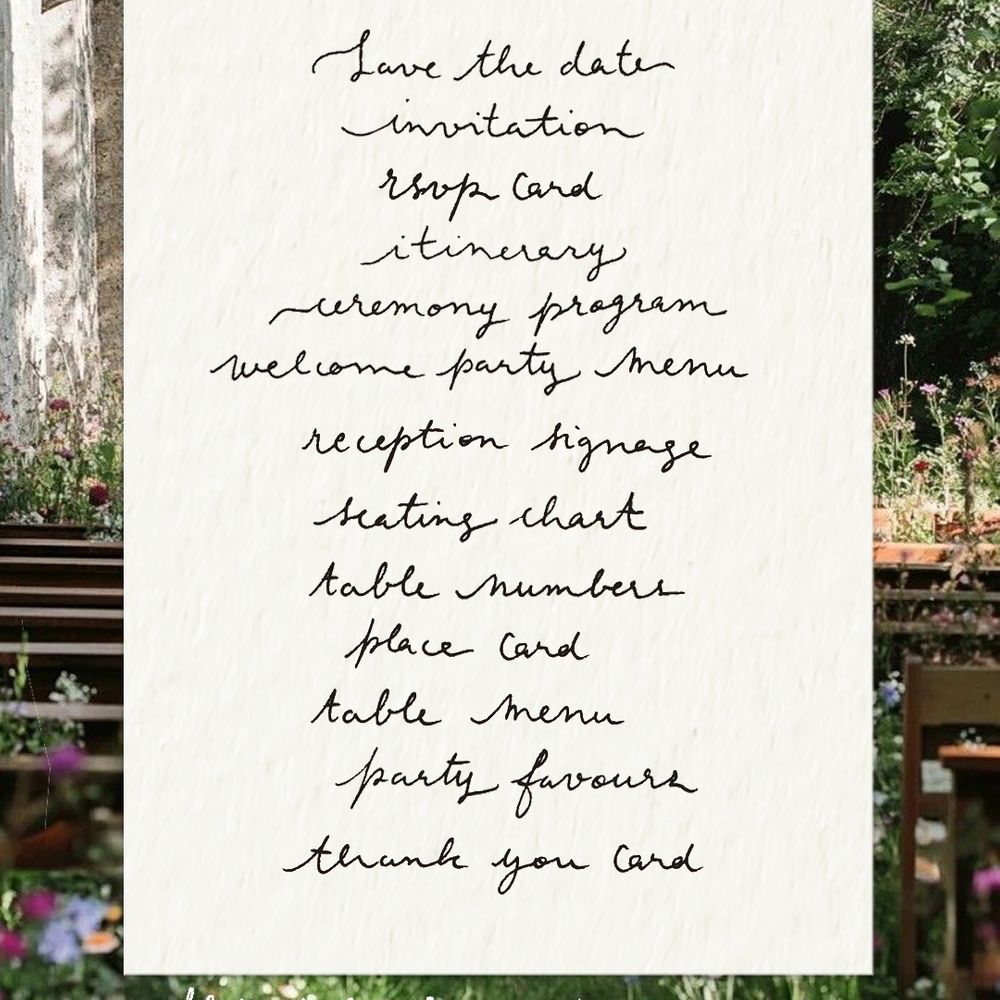 Save the date
invitation
rsvp Card
itinerary
ceremony program
welcome party Menu
reception signage
seating chart
table numbers
place Card
table Menu
party favours
thank you Card